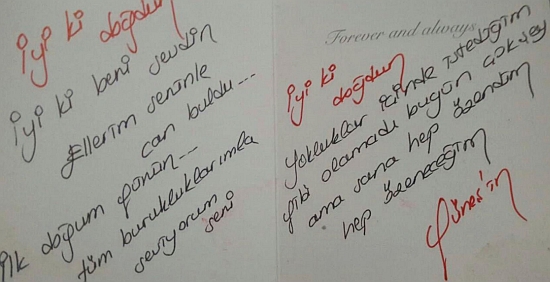 İyi ki doğdun
İyi ki beni sevdin
Ellerim seninle
can buldu...
İlk doğum günün...
tüm burukluklarımla
seviyorum
seni
Forever and always
İyi ki
doğdun
Yokluklar içinde istediğim
gibi olamadı bugün çoksey
ama sana hep özendim
hep özeneceğim
Güneş'in